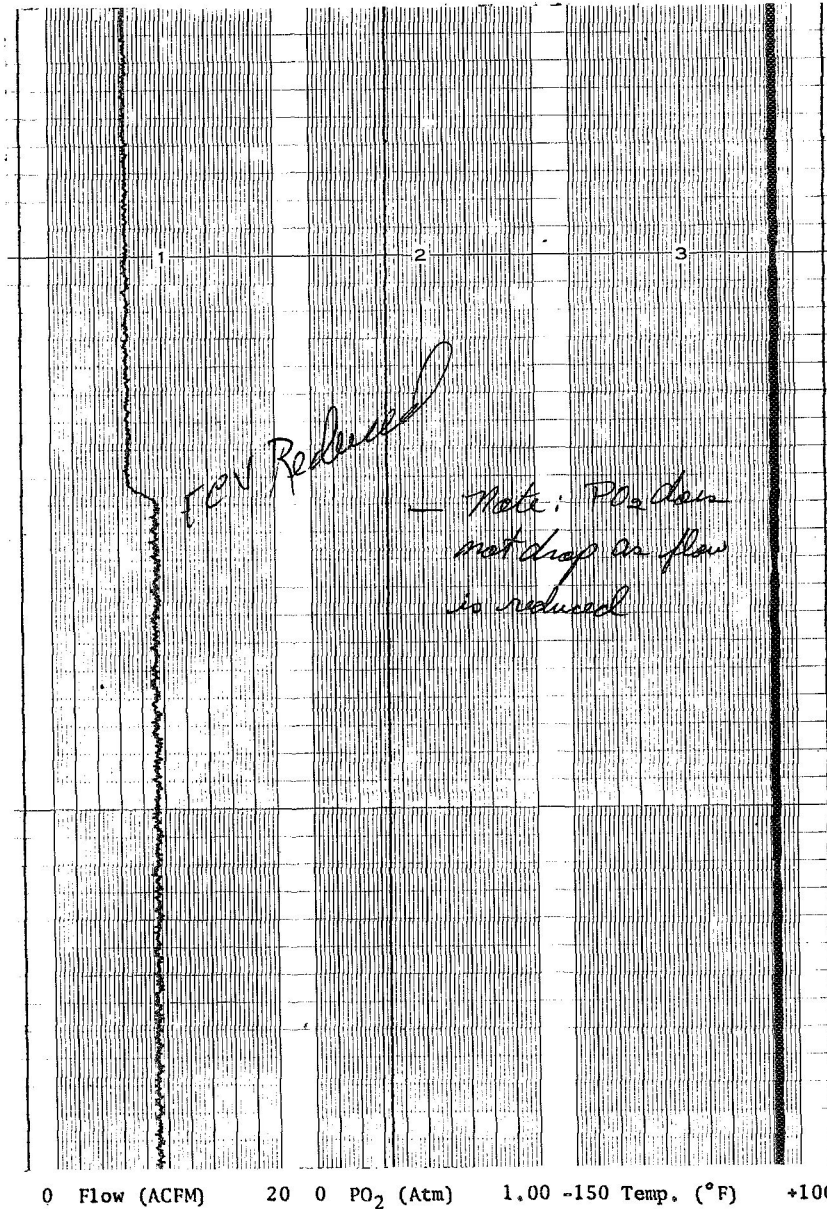 1 2 3
FCV Reduced
— Note: PO₂ does
not drop as flow
is reduced
0 Flow (ACFM) 20 0 PO₂ (Atm) 1.00 -150 Temp. (°F) +100